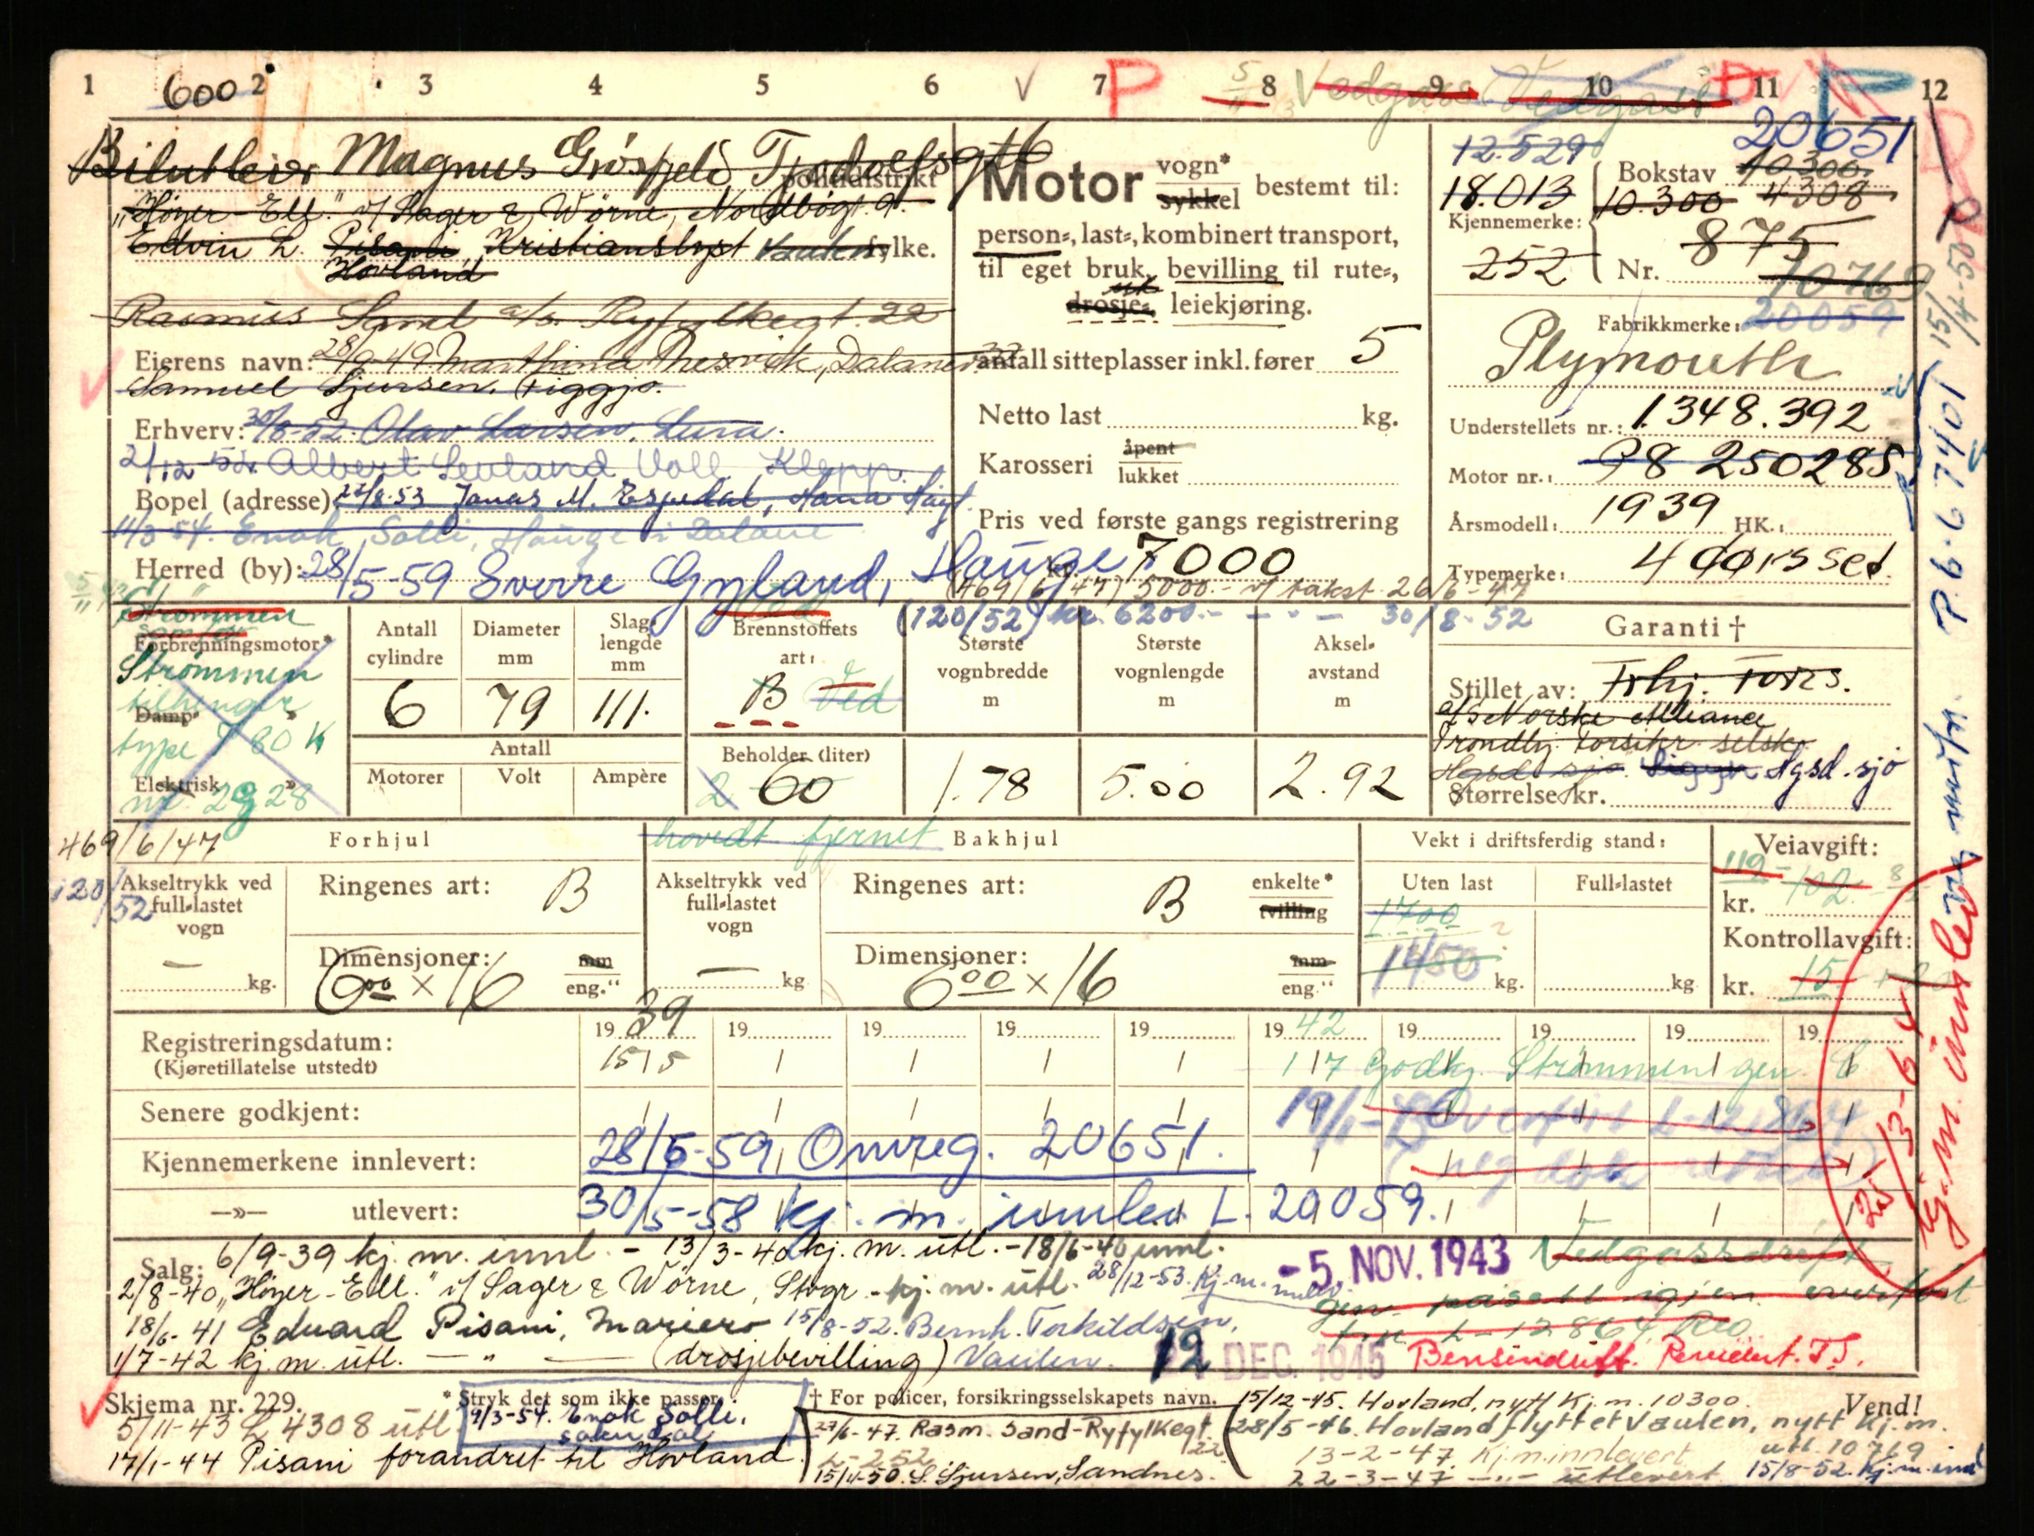 1 600 2 3 4 5 6 V 7 P 5/11 8 Vedgass 9 Vedgass 10 11 12
Biluteier Magnus Grøsfjeld Tjodolfsgt 6
politidistrikt
"Høyer-Ell." v/ Sager & Wörne, Nordbøgt. 9.
Edvin L. Pisani, Kristianslyst Vaulen fylke.
Hovland
Rasmus Sand a/s. Ryfylkegt. 22
Eierens navn: 28/9-49 Marthina Thesvik, Dalanev.
Samuel Sjursen, Figgjo.
Erhverv: 30/8-52 Olav Larsen, Lura.
2/12-52. Albert Levland Voll Klepp.
Bopel (adresse) 22/8-53 Jonas M. Espedal, Hana Høgt.
11/3-54. Enok Solli, Hauge i Dalane
Herred (by): 28/5-59 Sverre Gyland, Hauge
Motor vogn* sykkel bestemt til:
person-, last-, kombinert transport,
til eget bruk, bevilling til rute-,
drosje-, leiekjøring.
antall sitteplasser inkl. fører 5
Netto last kg.
Karosseri åpent lukket
Pris ved første gangs registrering
7000
(469/6/47) 5000.- v/ takst 26/6-47
(120/52) kr. 6200.- - " - 30/8-52
12.529 20651
18.013 Bokstav 10300.
10.300 4308
Kjennemerke: 875
252 Nr. 10769
Fabrikkmerke: 20059
Plymouth
Understellets nr.: 1.348.392
Motor nr.: P8 250285
Årsmodell: 1939 HK.:
Typemerke: 4 dørs sed.
Strømmen
Forbrenningsmotor*
Strømmen
tilhenger
Damp- "
type V 80 K
Elektrisk "
nr. 2928
Antall cylindre 6
Diameter mm 79
Slaglengde mm 111.
Brennstoffets art: B Ved
Antall
Motorer Volt Ampère
Beholder (liter) 2 60
Største vognbredde m 1.78
Største vognlengde m 5.00
Akselavstand m 2.92
Garanti †
Stillet av: Trhj. Fors.
a/s Norske Alliance
Trondhj. Forsikr. selsk.
Agsd. sjø
Størrelse kr.
469/6/47 Forhjul
hovedt fjernet Bakhjul
Vekt i driftsferdig stand:
Veiavgift:
120/52
Akseltrykk ved full-lastet vogn kg.
Ringenes art: B
Dimensjoner: 6.00 x 16 mm eng."
Akseltrykk ved full-lastet vogn kg
Ringenes art: B enkelte* tvilling
Dimensjoner: 6.00 x 16 mm eng."
Uten last 1700 1450 kg.
Full-lastet kg
119- 102.
kr.
Kontrollavgift:
kr. 15
Registreringsdatum: 19 39 19 19 19 19 19 42 19 19 19 19
(Kjøretillatelse utstedt) 15/5 1/7 Godkj. Strømmen gen.
Senere godkjent: 19/1
28/5-59 Omreg. 20651.
Kjennemerkene innlevert:
—»— utlevert: 30/5-58 kj. m. innlev. L. 20059.
Salg: 6/9-39 kj. m. innl. - 13/3-40 kj. m. utl. - 18/6-40 innl.
2/8-40 "Høyer-Ell." v/ Sager & Wörne, Stvgr. - kj. m. utl. 28/12-53. Kj. m. innlev.
18/6-41 Eduard Pisani, Mariero 15/8-52. Bernh. Torkildsen,
1/7-42 kj. m. utl. — " — (drosjebevilling) Vaulen.
- 5. NOV. 1943 Vedgassdrift
gen. påsatt igjen overført
fra L-12864
12 DEC. 1945 Bensindrift.
Skjema nr. 229.
* Stryk det som ikke passer.
† For policer, forsikringsselskapets navn.
Vend!
5/11-43 L 4308 utl
9/3-54. Enok Solli, Sokndal
17/1-44 Pisani forandret til Hovland
27/6-47. Rasm. Sand-Ryfylkegt. 22
L-252
15/11-50. S. Sjursen, Sandnes.
15/12-45. Hovland, nytt Kj. m. 10300.
28/5-46. Hovland flyttet Vaulen, nytt Kj. m.
utl. 10769
13-2-47. Kj. m innlevert
22-3-47 —"— utlevert 15/8-52. Kj. m. innl
P. 6. 67401 15/4-50
25/3-64
kj. m. innlev.